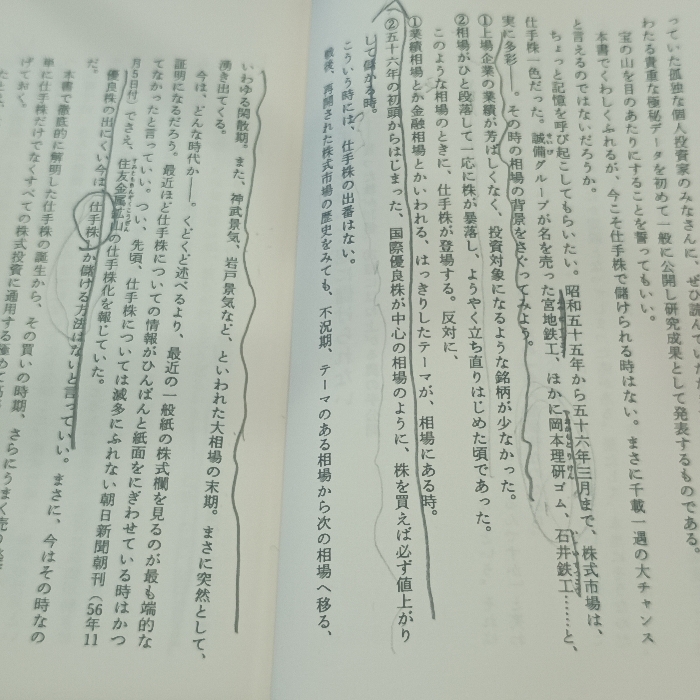 っていた孤独な個人投資家のみなさんに、ぜひ読
わたる貴重な極秘データを初めて一般に公開し研究成果として発表するものである。
宝の山を目のあたりにすることを誓ってもいい。
本書でくわしくふれるが、今こそ仕手株で儲けられる時はない。まさに千載一遇の大チャンス
と言えるのではないだろうか。
ちょっと記憶を呼び起こしてもらいたい。昭和五十五年から五十六年三月まで、株式市場は、
仕手株一色だった。誠備グループが名を売った宮地鉄工、ほかに岡本理研ゴム、石井鉄工……と、
実に多彩――。その時の相場の背景をさぐってみよう。
①上場企業の業績が芳ばしくなく、投資対象になるような銘柄が少なかった。
②相場がひと段落して一応に株が暴落し、ようやく立ち直りはじめた頃であった。
このような相場のときに、仕手株が登場する。反対に、
①業績相場とか金融相場とかいわれる、はっきりしたテーマが、相場にある時。
②五十六年の初頭からはじまった、国際優良株が中心の相場のように、株を買えば必ず値上がり
して儲かる時。
こういう時には、仕手株の出番はない。
戦後、再開された株式市場の歴史をみても、不況期、テーマのある相場から次の相場へ移る、
いわゆる閑散期。また、神武景気、岩戸景気など、といわれた大相場の末期。まさに突然として、
湧き出てくる。
今は、どんな時代か――。くどくど述べるより、最近の一般紙の株式欄を見るのが最も端的な
証明になるだろう。最近ほど仕手株についての情報がひんぱんと紙面をにぎわせている時はかつ
てなかったと言っていい。つい、先頃、仕手株については滅多にふれない朝日新聞朝刊（56年11
月5日付）でさえ、住友金属鉱山の仕手株化を報じていた。
優良株の出にくい今は、仕手株しか儲ける方法はないと言っていい。まさに、今はその時なの
だ。
本書で徹底的に解明した仕手株の誕生から、その買いの時期、さらにうまく売り
単に仕手株だけでなくすべての株式投資に通用する極めて
げておく。